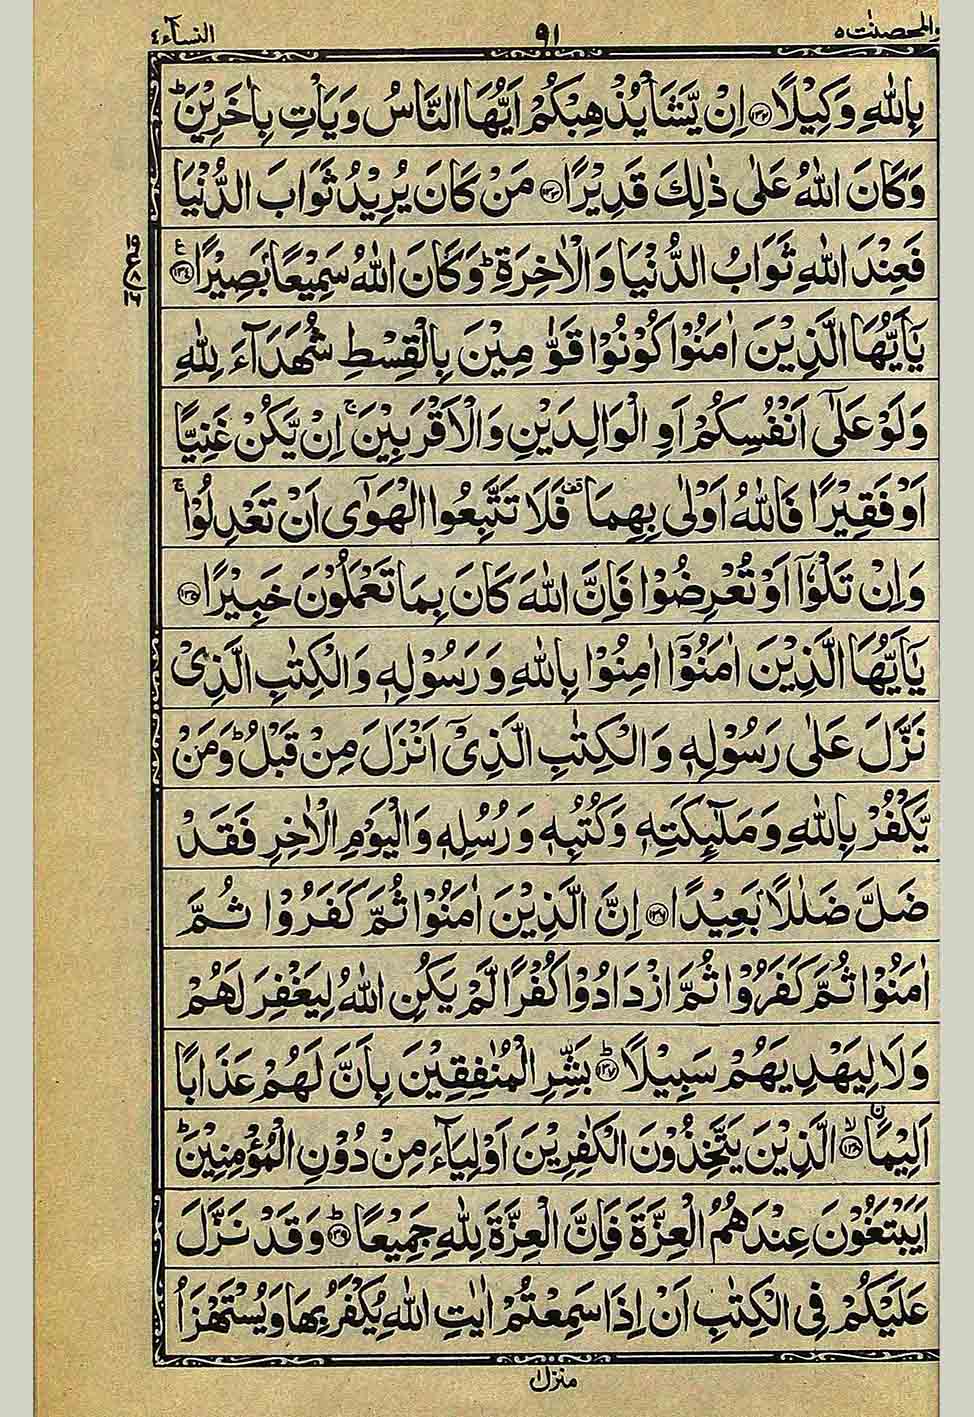 والمحصنٰت ٥ ٩١ النسآء ٤
بِاللّٰهِ وَكِيْلًا ﴿١٣٢﴾ اِنْ يَّشَاْ يُذْهِبْكُمْ اَيُّهَا النَّاسُ وَيَاْتِ بِاٰخَرِيْنَ ؕ
وَكَانَ اللّٰهُ عَلٰى ذٰلِكَ قَدِيْرًا ﴿١٣٣﴾ مَنْ كَانَ يُرِيْدُ ثَوَابَ الدُّنْيَا
فَعِنْدَ اللّٰهِ ثَوَابُ الدُّنْيَا وَالْاٰخِرَةِ ؕ وَكَانَ اللّٰهُ سَمِيْعًۢا بَصِيْرًا ﴿١٣٤﴾ ع
يٰۤاَيُّهَا الَّذِيْنَ اٰمَنُوْا كُوْنُوْا قَوّٰمِيْنَ بِالْقِسْطِ شُهَدَآءَ لِلّٰهِ
وَلَوْ عَلٰۤى اَنْفُسِكُمْ اَوِ الْوَالِدَيْنِ وَالْاَقْرَبِيْنَ ۚ اِنْ يَّكُنْ غَنِيًّا
اَوْ فَقِيْرًا فَاللّٰهُ اَوْلٰى بِهِمَا قف فَلَا تَتَّبِعُوا الْهَوٰۤى اَنْ تَعْدِلُوْا ۚ
وَاِنْ تَلْوٗۤا اَوْ تُعْرِضُوْا فَاِنَّ اللّٰهَ كَانَ بِمَا تَعْمَلُوْنَ خَبِيْرًا ﴿١٣٥﴾
يٰۤاَيُّهَا الَّذِيْنَ اٰمَنُوْۤا اٰمِنُوْا بِاللّٰهِ وَرَسُوْلِهٖ وَالْكِتٰبِ الَّذِىْ
نَزَّلَ عَلٰى رَسُوْلِهٖ وَالْكِتٰبِ الَّذِىْۤ اَنْزَلَ مِنْ قَبْلُ ؕ وَمَنْ
يَّكْفُرْ بِاللّٰهِ وَمَلٰٓئِكَتِهٖ وَكُتُبِهٖ وَرُسُلِهٖ وَالْيَوْمِ الْاٰخِرِ فَقَدْ
ضَلَّ ضَلٰلًاۢ بَعِيْدًا ﴿١٣٦﴾ اِنَّ الَّذِيْنَ اٰمَنُوْا ثُمَّ كَفَرُوْا ثُمَّ
اٰمَنُوْا ثُمَّ كَفَرُوْا ثُمَّ ازْدَادُوْا كُفْرًا لَّمْ يَكُنِ اللّٰهُ لِيَغْفِرَ لَهُمْ
وَلَا لِيَهْدِيَهُمْ سَبِيْلًا ؕ﴿١٣٧﴾ بَشِّرِ الْمُنٰفِقِيْنَ بِاَنَّ لَهُمْ عَذَابًا
اَلِيْمًا ۙ﴿١٣٨﴾ اۨلَّذِيْنَ يَتَّخِذُوْنَ الْكٰفِرِيْنَ اَوْلِيَآءَ مِنْ دُوْنِ الْمُؤْمِنِيْنَ ؕ
اَيَبْتَغُوْنَ عِنْدَهُمُ الْعِزَّةَ فَاِنَّ الْعِزَّةَ لِلّٰهِ جَمِيْعًا ؕ﴿١٣٩﴾ وَقَدْ نَزَّلَ
عَلَيْكُمْ فِى الْكِتٰبِ اَنْ اِذَا سَمِعْتُمْ اٰيٰتِ اللّٰهِ يُكْفَرُ بِهَا وَيُسْتَهْزَاُ
منزل ١